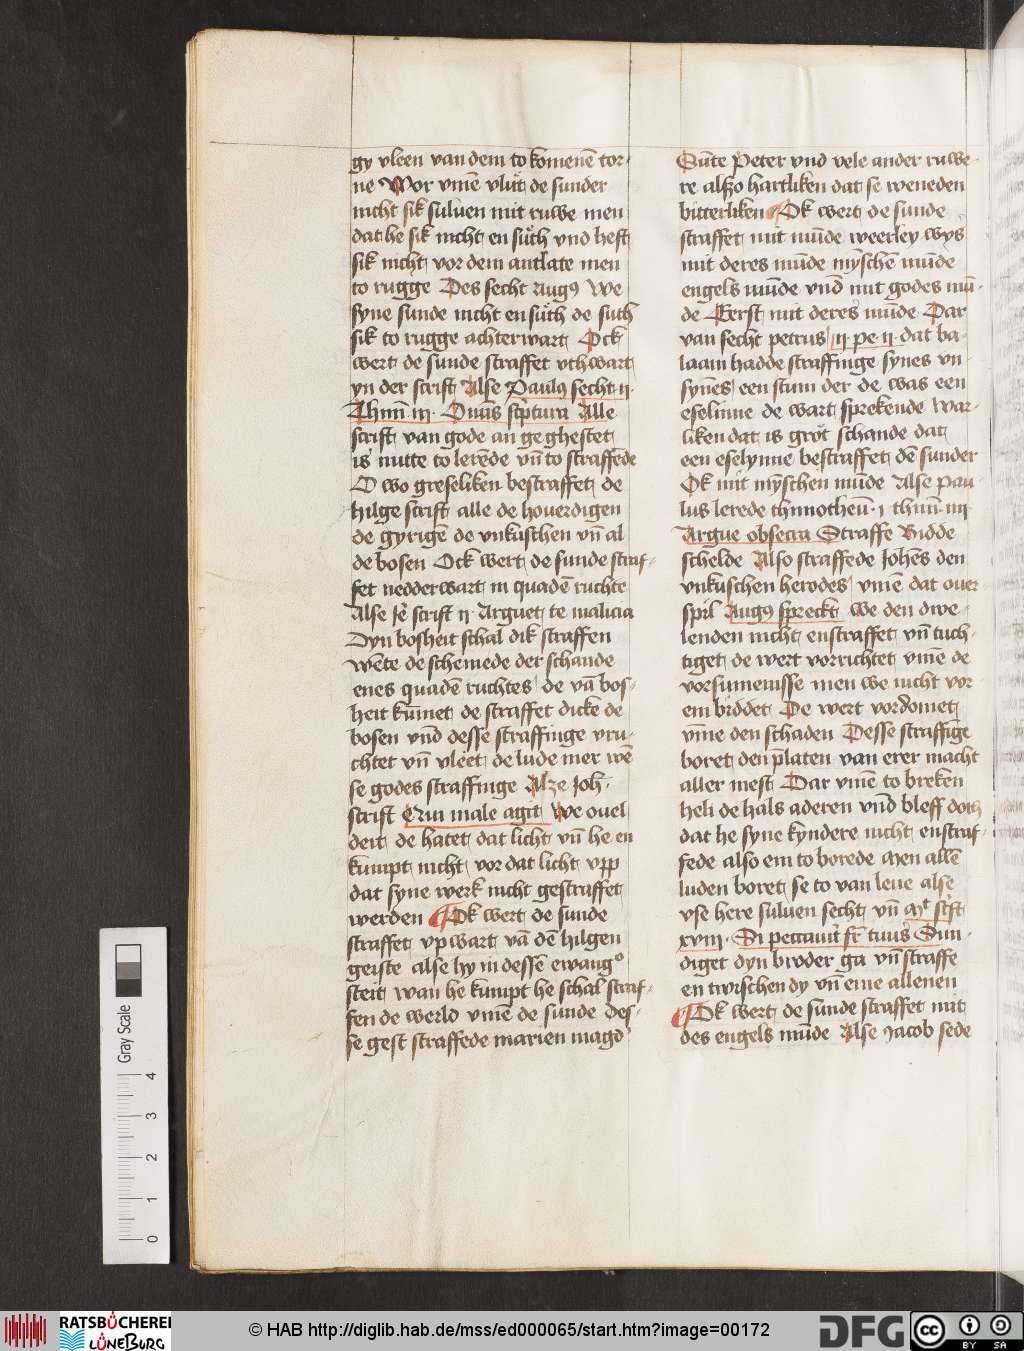 gy vleen van dem to komenē tor-
ne Wor vmē vlut de sunder
nicht sik suluen mit ruwe men
dat he sik nicht en suth vnd heft
sik nicht vor dem antlate men
to rugge Des secht Augꝯ We
syne sunde nicht en suth de such
sik to rugge achterwart Ock
wert de sunde straffet vthwart
yn der scrift Alse Paulꝯ secht ii·
Thim̄ iii· Om̄is scptura Alle
scrift van gode an ge ghestet
is nutte to lerēde vn̄ to straffede
O wo greseliken bestraffet de
hilge scrift alle de houerdigen
de gyrigē de vnkuschen vn̄ al
de bosen Ock wert de sunde straf-
fet nedderwart in quadē ruchte
Alse Je scrift ii· Arguet te malicia
Dyn bosheit schal dik straffen
wēte de schemede der schande
enes quadē ruchtes de vā bos-
heit kumet de straffet dicke de
bosen vnd desse straffinge vru-
chtet vn̄ vleet de lude mer wē
se godes straffinge Alze Joh·
scrift Qui male agit We ouel
deit de hatet dat licht vn̄ he en
kumpt nicht vor dat licht vpp
dat syne werk nicht gestraffet
werden Ok wert de sunde
straffet vpwart vā dē hilgen
geiste alse hy in dessē ewangͦ
steit wan he kumpt he schal straf-
fen de werld vmē de sunde des-
se gest straffede marien magd
Sūte Peter vnd vele ander ruwe-
re alszo hartliken dat se weneden
bitterliken Ok wert de sunde
straffet mit mūde veerley wys
mit deres mūde myschē mūde
engels mūde vnd mit godes mū-
de Eerst mit deres mūde Dar
van secht petrus ii pe ii dat ba-
laam hadde straffinge synes vn-
synes een stum der de was een
eselinne de wart sprekende War-
liken dat is grot schande dat
een eselynne bestraffet dē sunder
Ok mit myschen mūde Alse Pau-
lus lerede thimotheū· i thim̄· iiii
Argue obsecra Straffe Bidde
schelde Also straffede Johēs den
vnkuschen herodes vmē dat ouer
spil Augꝯ spreckt we den dwe-
lenden nicht enstraffet vn̄ tuch-
tiget de wert vorrichtet vmē de
vorsumenisse men we nicht vor
em biddet De wert vordomet
vm̄e den schaden Desse straffīge
boret den p̄laten van erer macht
aller mest Dar vmē to breken
heli de hals aderen vnd bleff dot
dat he syne kyndere nicht enstraf-
fede also em to borede Men allē
luden boret se to van leue alse
vse here suluen secht vn̄ Mͭ scft
xviii· Si peccauit fr̄ tuus Sun-
diget dyn broder ga vn̄ straffe
en twischen dy vn̄ eme allenen
Ok wert de sunde straffet mit
des engels mūde Alse Jacob sede
Gray Scale
4
3
2
1
0
RATSBÜCHEREI
LÜNEBURG
© HAB http://diglib.hab.de/mss/ed000065/start.htm?image=00172
DFG
cc
BY SA